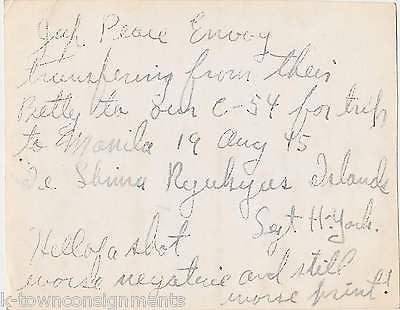 Jap. Peace Envoy
transfering from their
Betty to our C-54 for trip
to Manila 19 Aug 45
Ie Shima Ryukyus Islands
Sgt H. York.
Hellofa shot
worse negative and still
worse print!
k-townconsignments